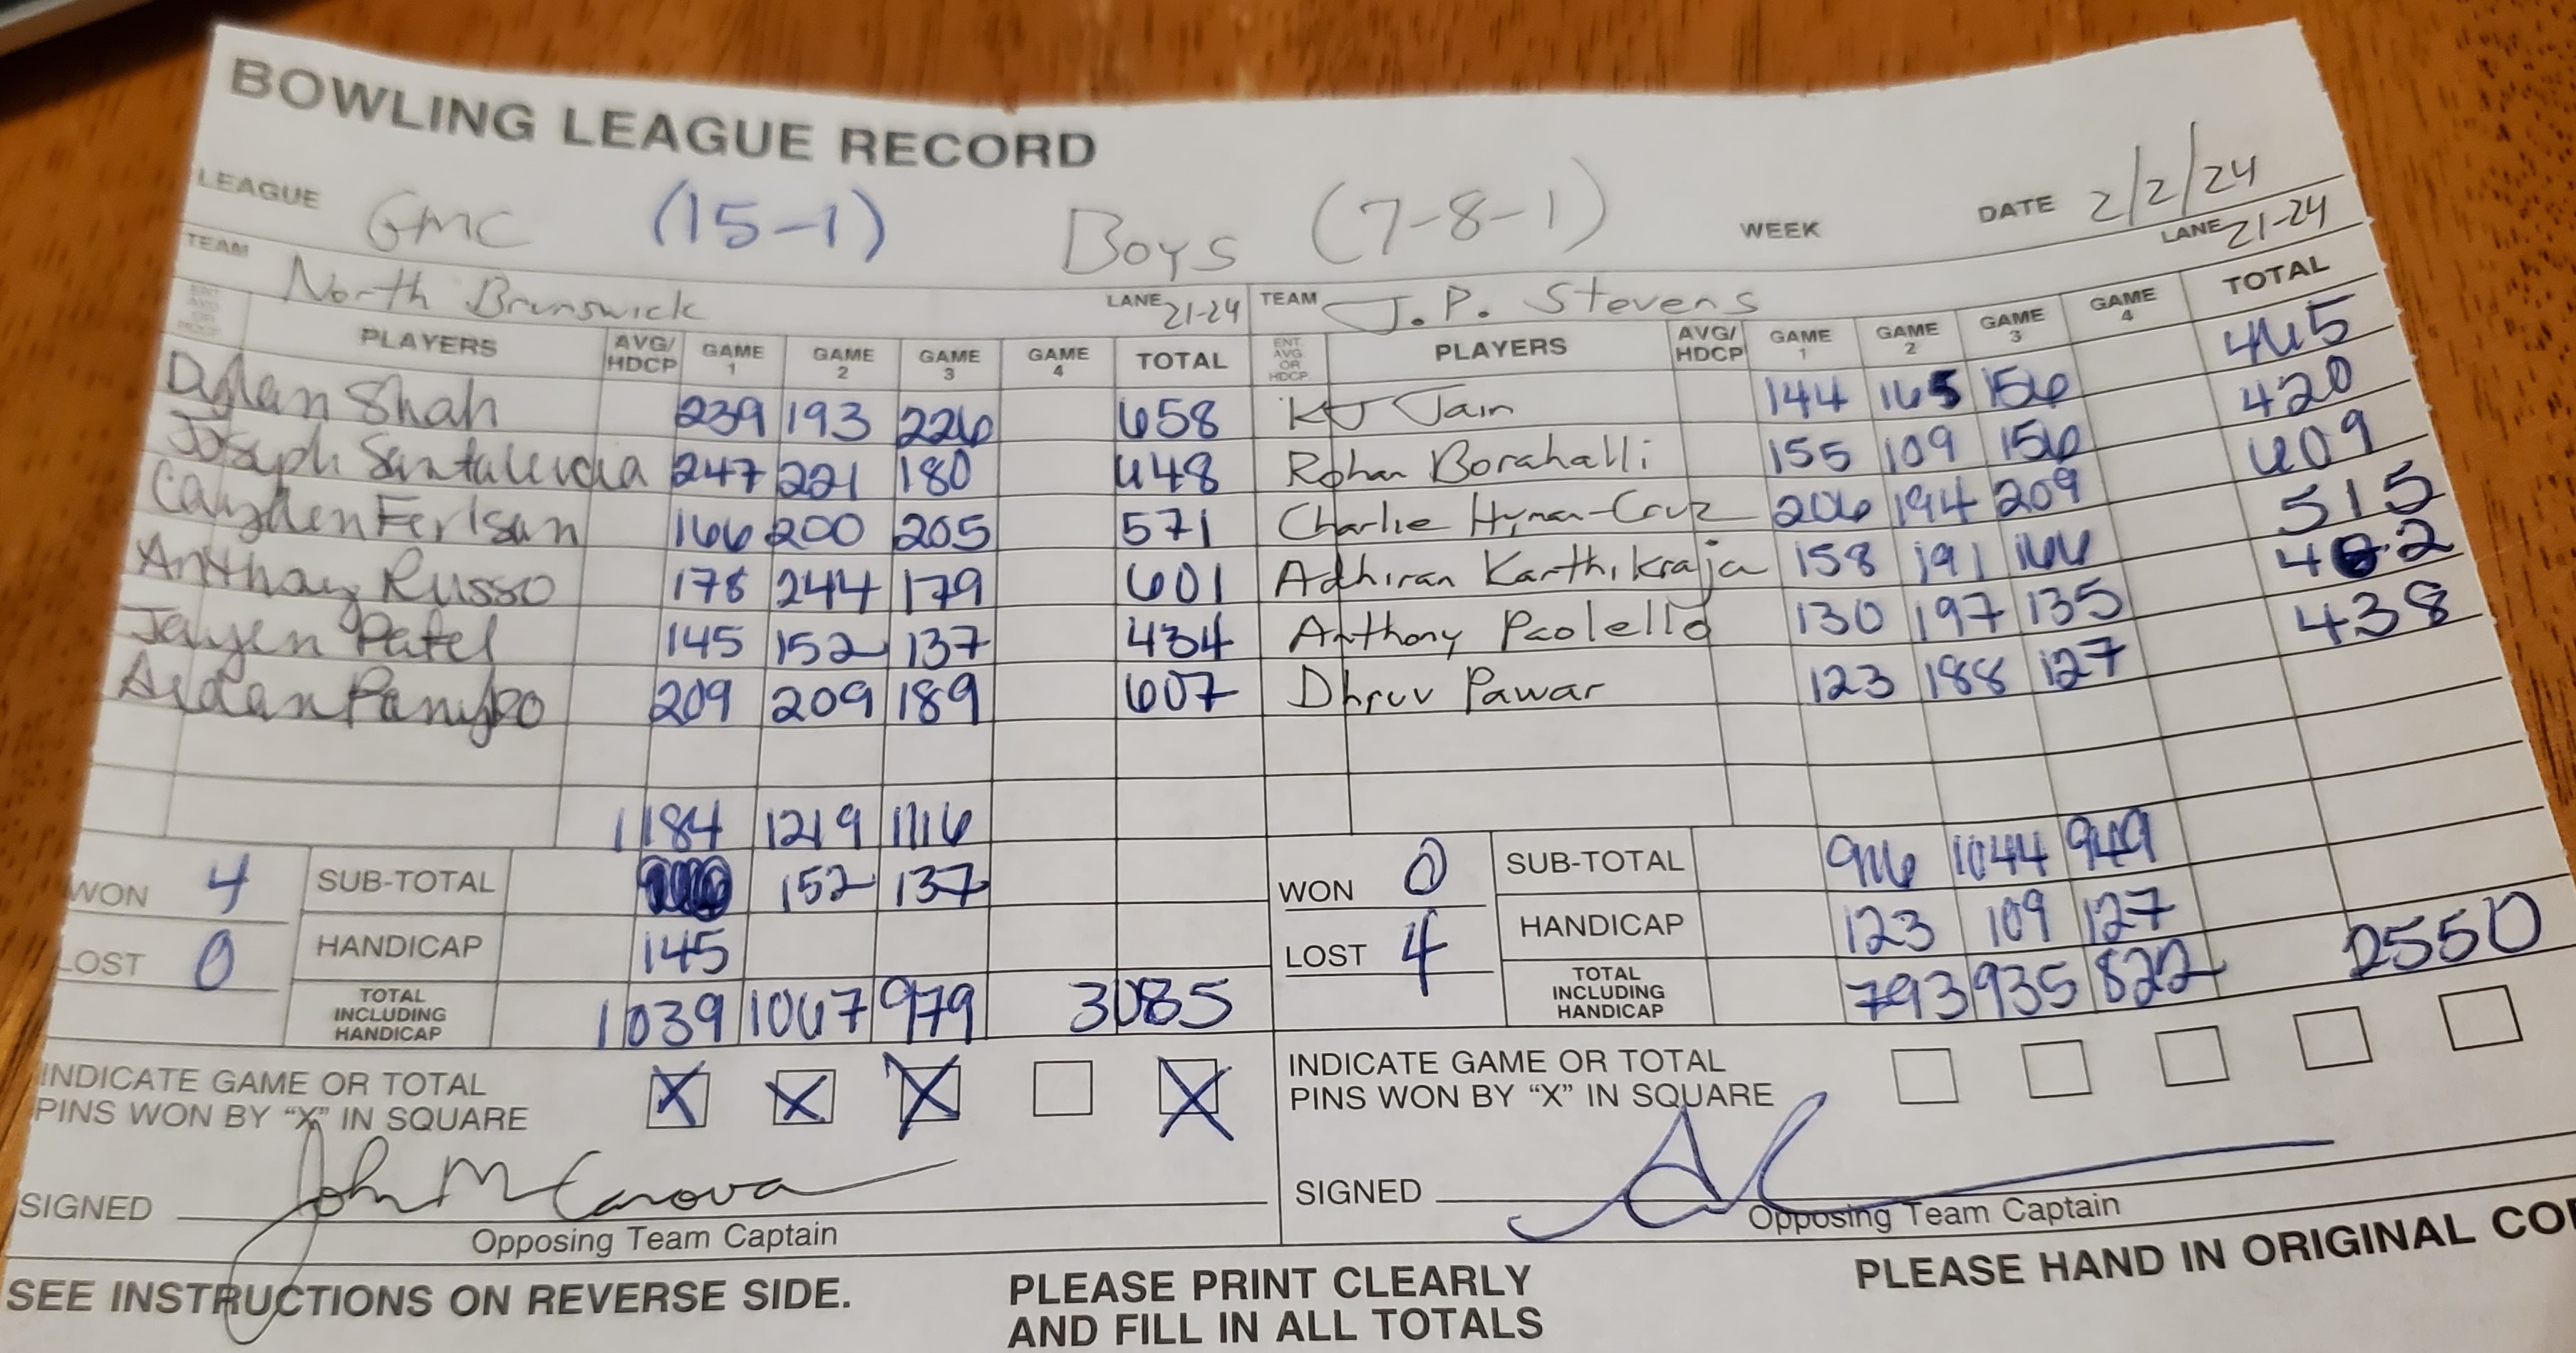 BOWLING LEAGUE RECORD
LEAGUE GMC (15-1) Boys (7-8-1) WEEK DATE 2/2/24
TEAM North Brunswick LANE 21-24 TEAM J.P. Stevens LANE 21-24
ENT. AVG OR HDCP PLAYERS AVG/HDCP GAME 1 GAME 2 GAME 3 GAME 4 TOTAL ENT. AVG OR HDCP PLAYERS AVG/HDCP GAME 1 GAME 2 GAME 3 GAME 4 TOTAL
Dylan Shah 239 193 226 658 KJ Jain 144 165 156 465
Joseph Santalucia 247 221 180 648 Rohan Borahalli 155 109 156 420
Cayden Ferlsan 166 200 205 571 Charlie Hyman-Cruz 206 194 209 609
Anthony Russo 178 244 179 601 Adhiran Karthikraja 158 191 166 515
Jayen Patel 145 152 137 434 Anthony Paolello 130 197 135 462
Aidan 209 209 189 607 Dhruv Pawar 123 188 127 438
1184 1219 1116
WON 4 SUB-TOTAL 152 137 WON 0 SUB-TOTAL 916 1044 949
LOST 0 HANDICAP 145 LOST 4 HANDICAP 123 109 127
TOTAL INCLUDING HANDICAP 1039 1067 979 3085 TOTAL INCLUDING HANDICAP 793 935 822 2550
INDICATE GAME OR TOTAL PINS WON BY "X" IN SQUARE X X X X INDICATE GAME OR TOTAL PINS WON BY "X" IN SQUARE
SIGNED John M Canova SIGNED
Opposing Team Captain Opposing Team Captain
SEE INSTRUCTIONS ON REVERSE SIDE. PLEASE PRINT CLEARLY AND FILL IN ALL TOTALS PLEASE HAND IN ORIGINAL CO